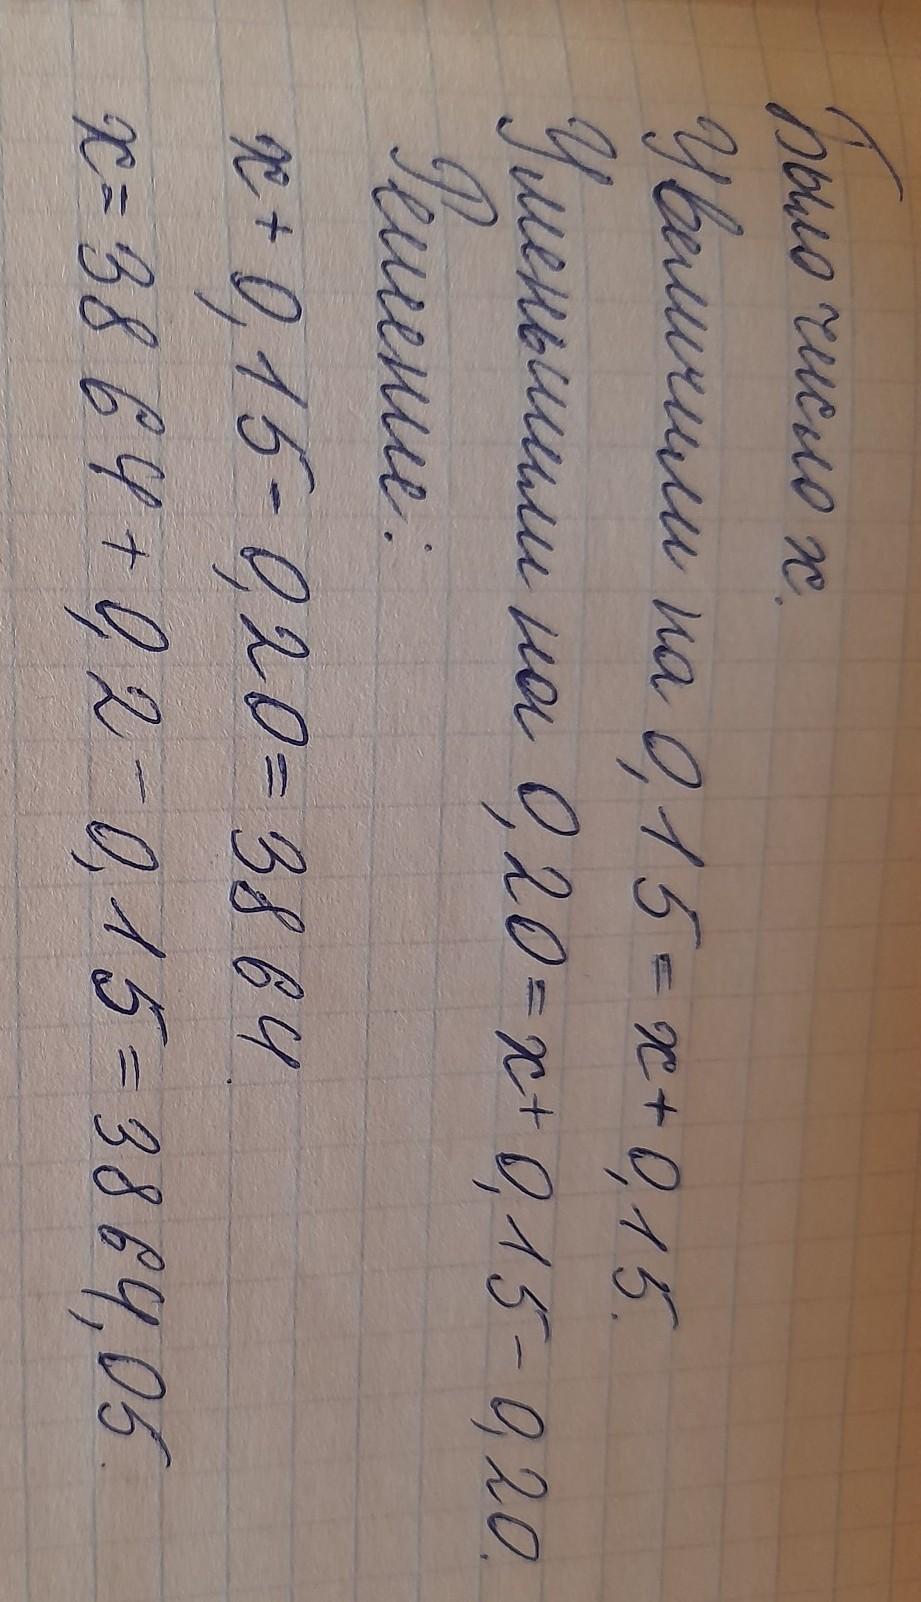 Было число x.
Увеличили на 0,15 = x + 0,15.
Уменьшили на 0,20 = x + 0,15 - 0,20.
Решение:
x + 0,15 - 0,20 = 3864.
x = 3864 + 0,2 - 0,15 = 3864,05.